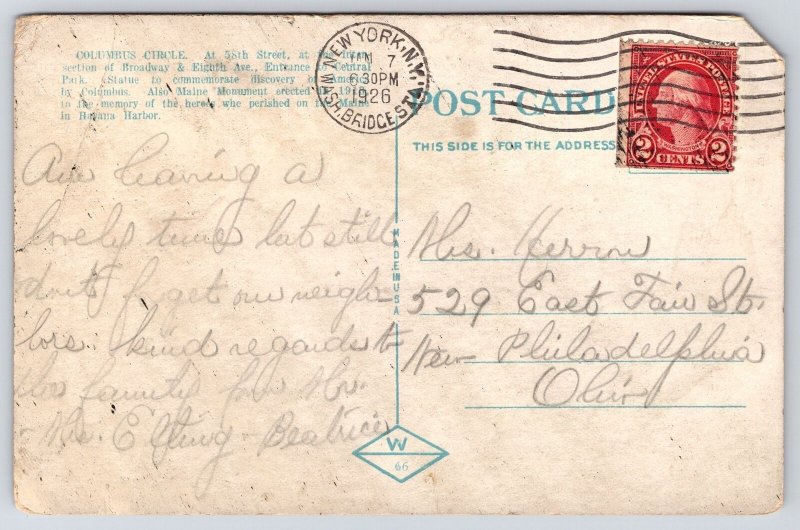 COLUMBUS CIRCLE. At 58th Street, at the inter-
section of Broadway & Eighth Ave., Entrance to Central
Park. Statue to commemorate discovery of America
by Columbus. Also Maine Monument erected in
to the memory of the heroes who perished on the Maine
in Havana Harbor.
NEW YORK, N.Y.
WASH. BRIDGE STA.
JAN 7
6 30PM
1926
UNITED STATES POSTAGE
WASHINGTON
2 CENTS 2
POST CARD
THIS SIDE IS FOR THE ADDRESS
Am having a
lovely time but still
don't forget our neigh-
bors. kind regards to
the family from Mr.
+ Mrs. Elting - Beatrice
MADE IN USA
Mrs. Herron
529 East Fair St.
New Philadelphia
Ohio
W
66